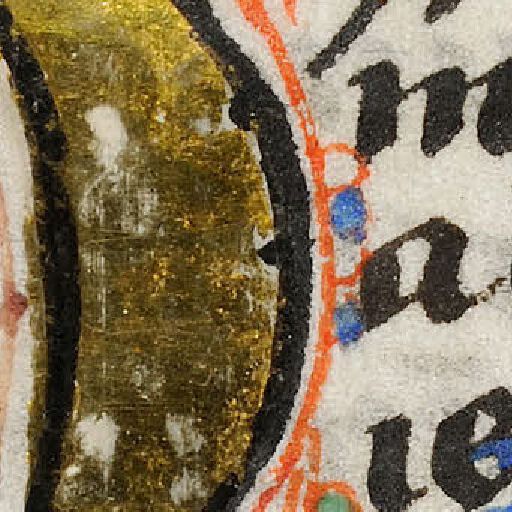 m
a
ie